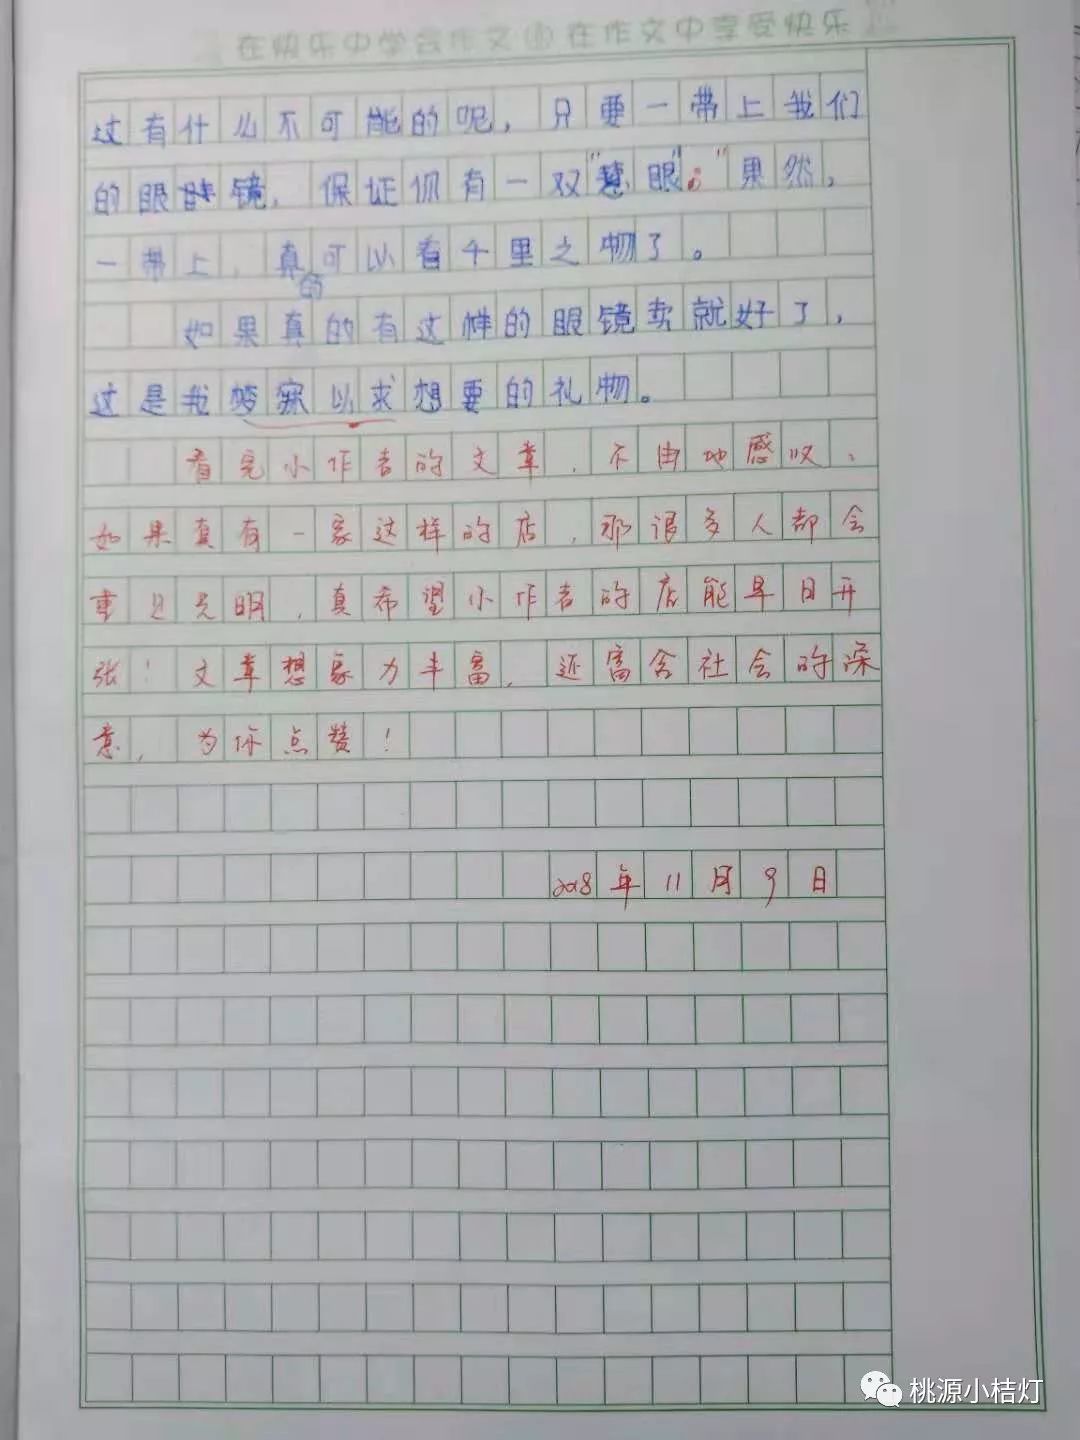 在快乐中学会作文 在作文中享受快乐
过有什么不可能的呢，只要一带上我们
的眼镜，保证你有一双"慧眼"。"果然，
一带上，真的可以看千里之物了。
如果真的有这样的眼镜卖就好了，
这是我梦寐以求想要的礼物。
看完小作者的文章，不由地感叹、
如果真有一家这样的店，那很多人都会
重见光明，真希望小作者的店能早日开
张！文章想象力丰富，还富含社会的深
意，为你点赞！
2018年11月9日
桃源小桔灯